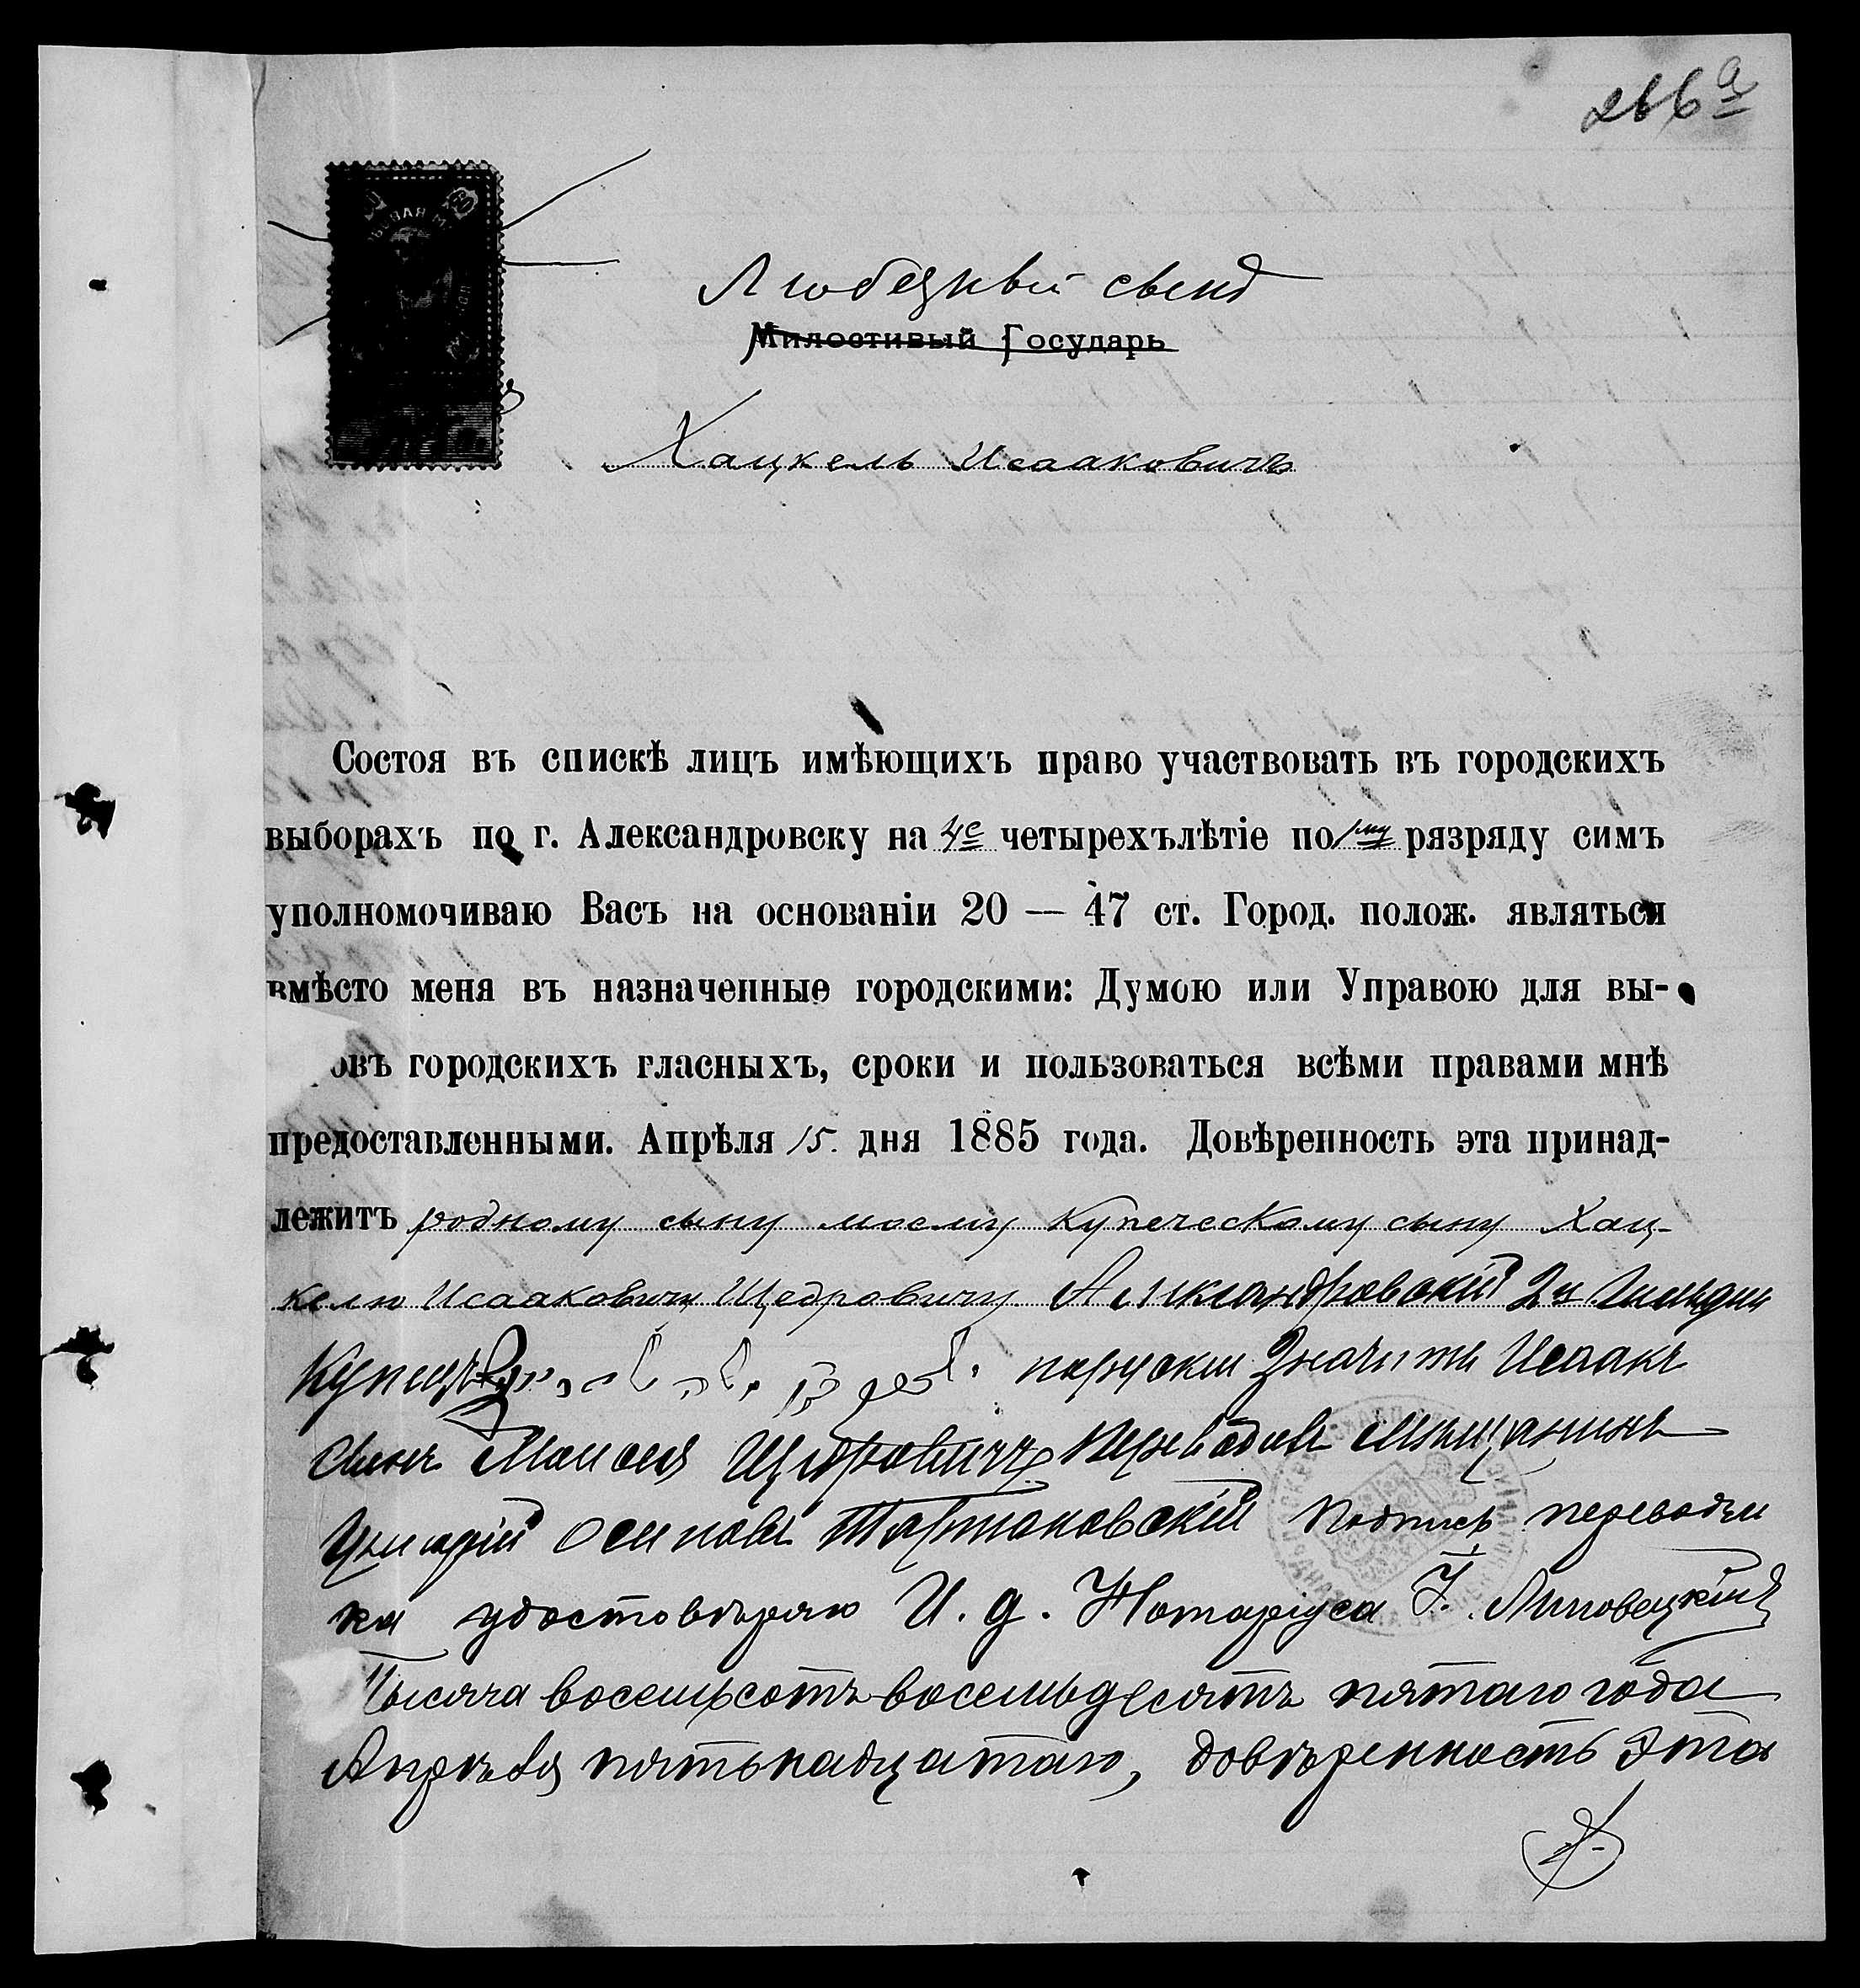 266 а
Любезный сынъ
Милостивый Государь
Хацкель Исааковичъ
Состоя въ спискѣ лицъ имѣющихъ право участвовать въ городскихъ
выборахъ по г. Александровску на 4е четырехълѣтіе по 1му рязряду симъ
уполномочиваю Васъ на основаніи 20 — 47 ст. Город. полож. являться
вмѣсто меня въ назначенные городскими: Думою или Управою для вы-
овъ городскихъ гласныхъ, сроки и пользоваться всѣми правами мнѣ
предоставленными. Апрѣля 15. дня 1885 года. Довѣренность эта принад-
лежитъ родному сыну моему купеческому сыну Хац-
келю Исааковичу Щедровичу Александровскій 2й Гильдіи
Купецъ поруски значитъ Исаакъ
сынъ Моисея Щедровичъ, переводилъ мѣщанинъ
Осиповъ Тартаковскій подпись переводчи
ка удостовѣряю И. д. Нотаріуса Г. Липовецкій
Тысяча восемьсотъ восемьдесятъ пятаго года
Апрѣля пятьнадцатаго, довѣренность эта